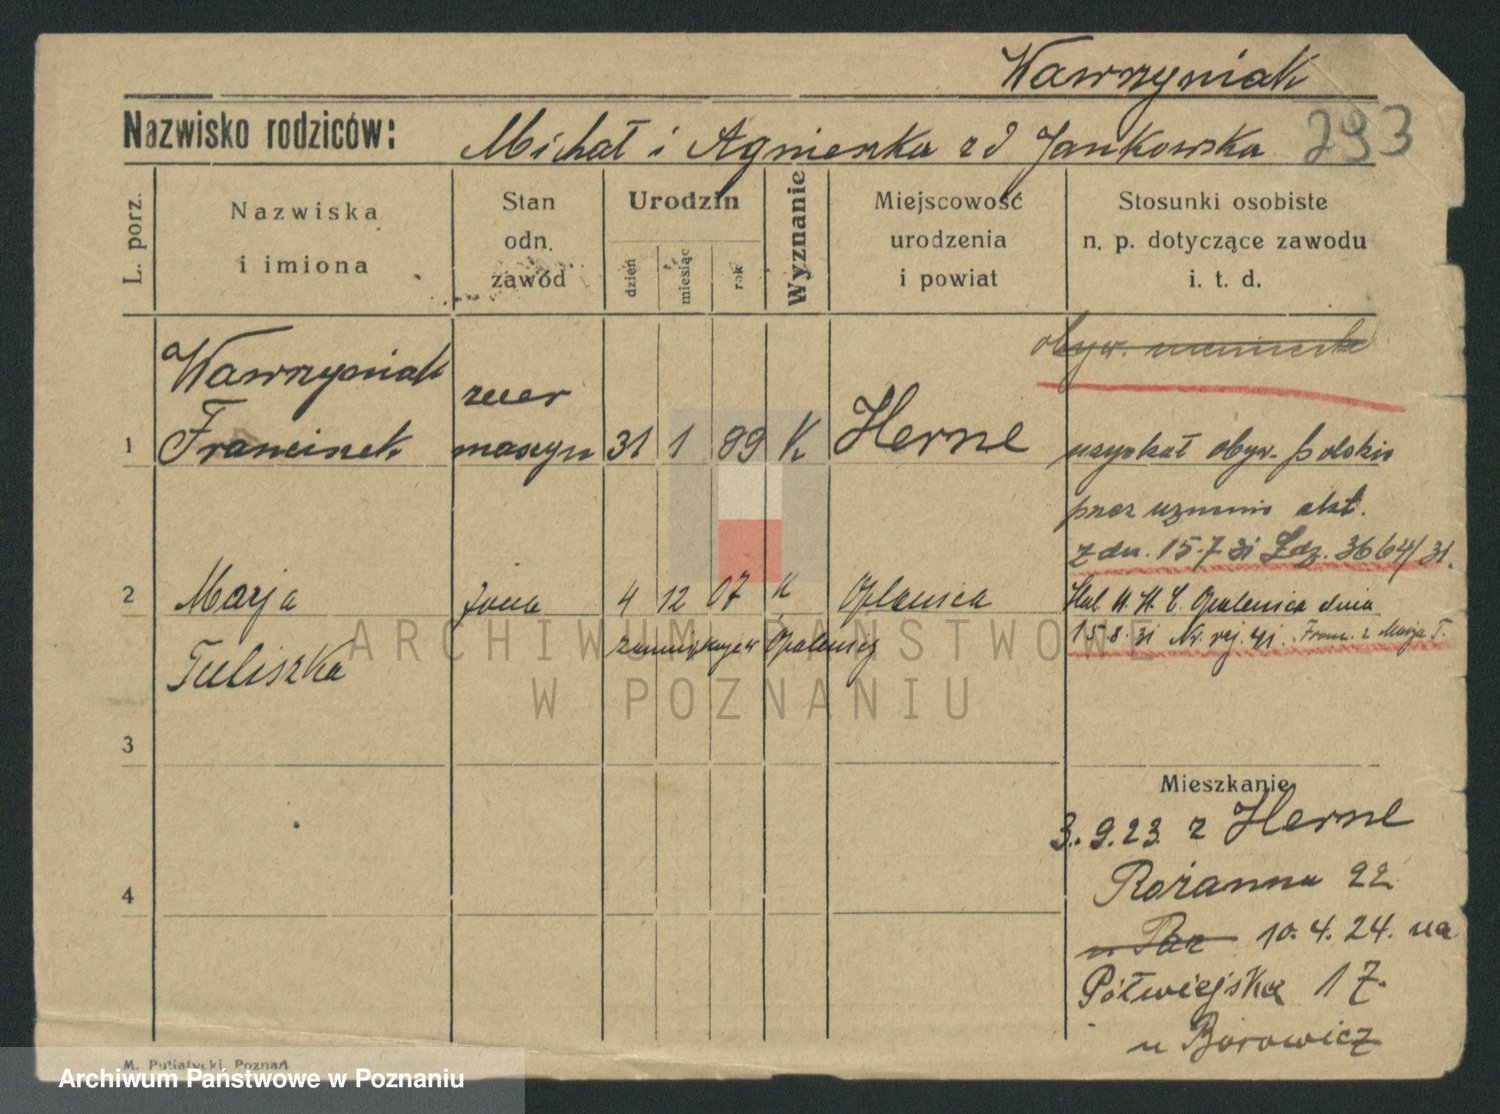 Wawrzyniak
Nazwisko rodziców: Michał i Agnieszka zd Jankowska 293
L. porz.
Nazwiska
i imiona
Stan
odn.
zawód
Urodzin
dzień
miesiąc
rok
Wyznanie
Miejscowość
urodzenia
i powiat
Stosunki osobiste
n. p. dotyczące zawodu
i. t. d.
obyw. niemieckie
1 Wawrzyniak
Franciszek
zecer
maszyn 31 1 99 K Herne
uzyskał obyw. polskie
przez uznanie akt.
z dn. 15.7.31 Ldz. 3664/31.
2 Marja
Tuliszka
żona 4 12 07 K Oplenica
w Opalenicy
U. S. C. Opalenica dnia
15.8.31 Nr. rej. 41. Franc. z Marją T.
3
4
Mieszkanie
3.9.23 z Herne
Różanna 22
10.4.24. na
Półwiejska 17.
u Borowicz
M. Putiatycki, Poznań
ARCHIWUM PAŃSTWOWE
W POZNANIU
Archiwum Państwowe w Poznaniu